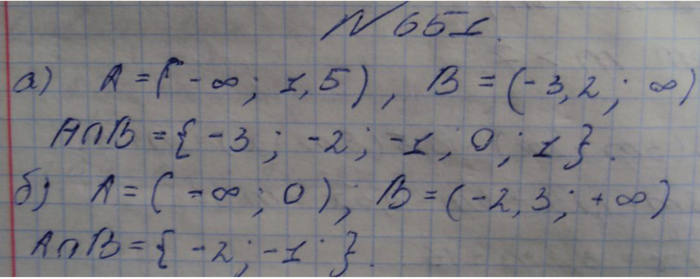 N 651.
а) A = (-∞; 1,5), B = (-3,2; ∞)
A∩B = {-3; -2; -1; 0; 1}.
б) A = (-∞; 0); B = (-2,3; +∞)
A∩B = {-2; -1; }.